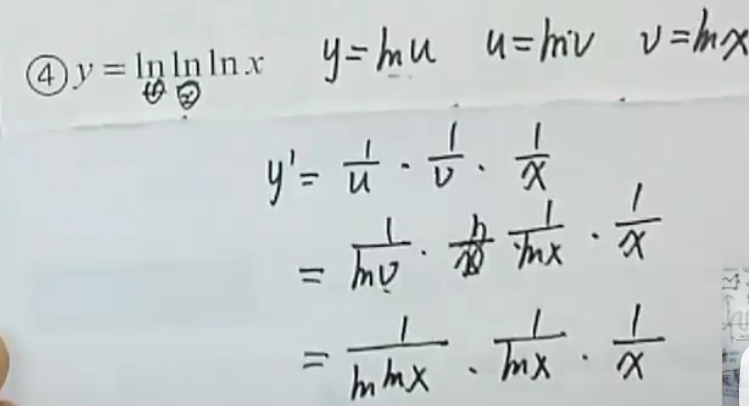 ④ y = ln ln ln x y = ln u u = ln v v = ln x
① ②
y' = 1/u · 1/v · 1/x
= 1/ln v · 1/ln x · 1/x
= 1/ln ln x · 1/ln x · 1/x